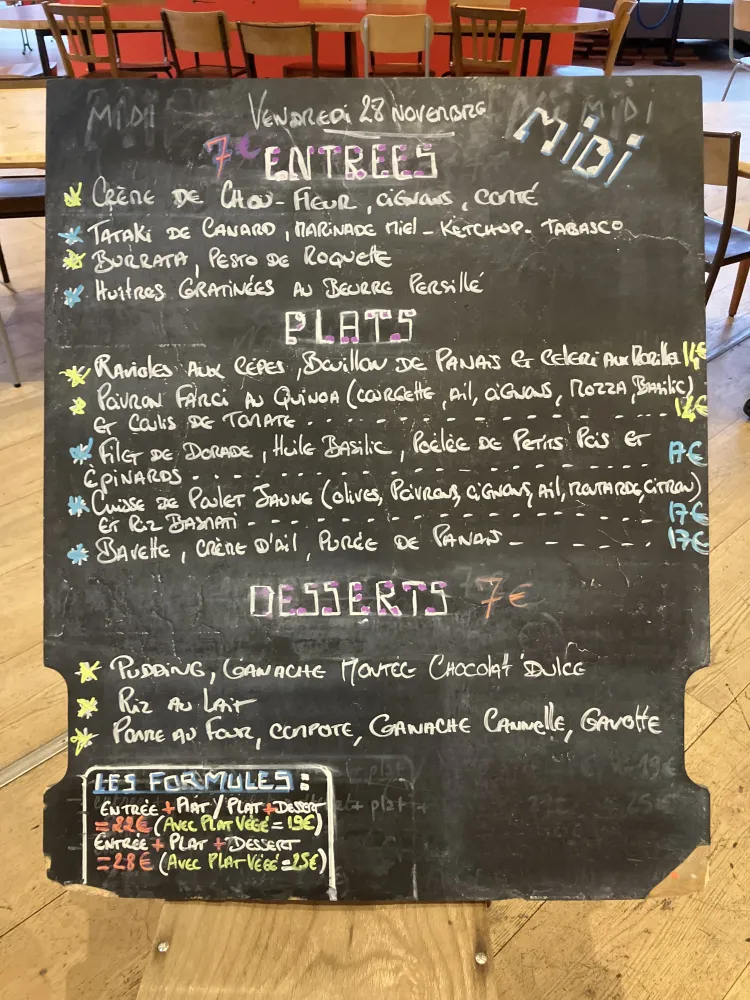 MIDI
VENDREDI 28 NOVEMBRE
MIDI
MIDI
7€ ENTREES
CRÈME DE CHOU-FLEUR, OIGNONS, COMTÉ
TATAKI DE CANARD, MARINADE MIEL-KETCHUP-TABASCO
BURRATA, PESTO DE ROQUETTE
HUITRES GRATINÉES AU BEURRE PERSILLÉ
PLATS
RAVIOLES AUX CÈPES, BOUILLON DE PANAIS ET CELERI AUX MORILLES 14€
POIVRON FARCI AU QUINOA (COURGETTE, AIL, OIGNONS, MOZZA, BASILIC)
ET COULIS DE TOMATE 14€
FILET DE DORADE, HUILE BASILIC, POÊLÉE DE PETITS POIS ET
ÉPINARDS 17€
CUISSE DE POULET JAUNE (OLIVES, POIVRONS, OIGNONS, AIL, MOUTARDE, CITRON)
ET RIZ BASMATI 17€
BAVETTE, CRÈME D'AIL, PURÉE DE PANAIS 17€
DESSERTS 7€
PUDDING, GANACHE MONTÉE CHOCOLAT DULCE
RIZ AU LAIT
POIRE AU FOUR, COMPOTE, GANACHE CANNELLE, GAVOTTE
LES FORMULES:
ENTRÉE + PLAT / PLAT + DESSERT
= 22€ (AVEC PLAT VÉGÉ = 19€)
ENTRÉE + PLAT + DESSERT
= 28€ (AVEC PLAT VÉGÉ = 25€)